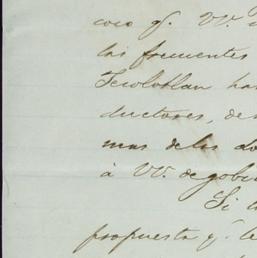 coco q. VV.
las frecuentes
Tecolotlan has
ductores, de
mas de los do
á VV. de gobi
Si
propuesta q. te